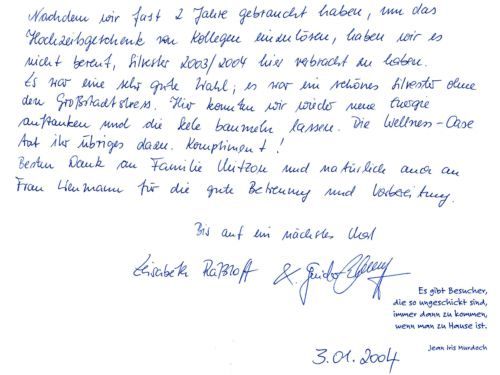 Nachdem wir fast 2 Jahre gebraucht haben, um das
Hochzeitsgeschenk von Kollegen einzulösen, haben wir es
nicht bereut, Silvester 2003/2004 hier verbracht zu haben.
Es war eine sehr gute Wahl, es war ein schönes Silvester ohne
den Großstadtstress. Hier konnten wir wieder neue Energie
auftanken und die Seele baumeln lassen. Die Wellness-Oase
tat ihr übriges dazu. Kompliment!
Besten Dank an Familie und natürlich auch an
Frau für die gute Betreuung und Vorbereitung.
Bis auf ein nächstes Mal
Elisabeth & Guido
Es gibt Besucher,
die so ungeschickt sind,
immer dann zu kommen,
wenn man zu Hause ist.
Jean Iris Murdoch
3.01.2004